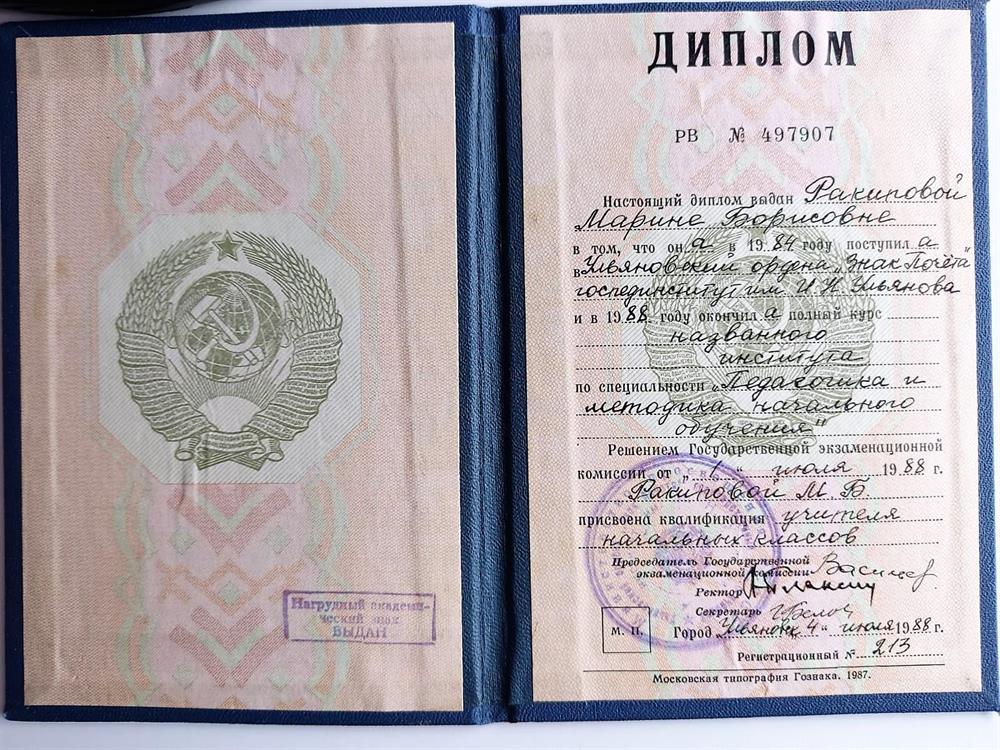 Нагрудный академи-
ческий знак
ВЫДАН
ДИПЛОМ
РВ № 497907
Настоящий диплом выдан Ракиповой
Марине Борисовне
в том, что он а в 1984 году поступил а
в Ульяновский ордена „Знак Почёта"
госпединститут им И Н Ульянова
и в 1988 году окончил а полный курс
названного
института
по специальности „Педагогика и
методика начального
обучения"
Решением Государственной экзаменационной
комиссии от „ 1 " июля 1988 г.
Ракиповой М. Б.
присвоена квалификация учителя
начальных классов
Председатель Государственной
экзаменационной комиссии
Ректор
Секретарь
М. П. Город Ульяновск 4 " июля 1988 г.
Регистрационный № 213
Московская типография Гознака. 1987.